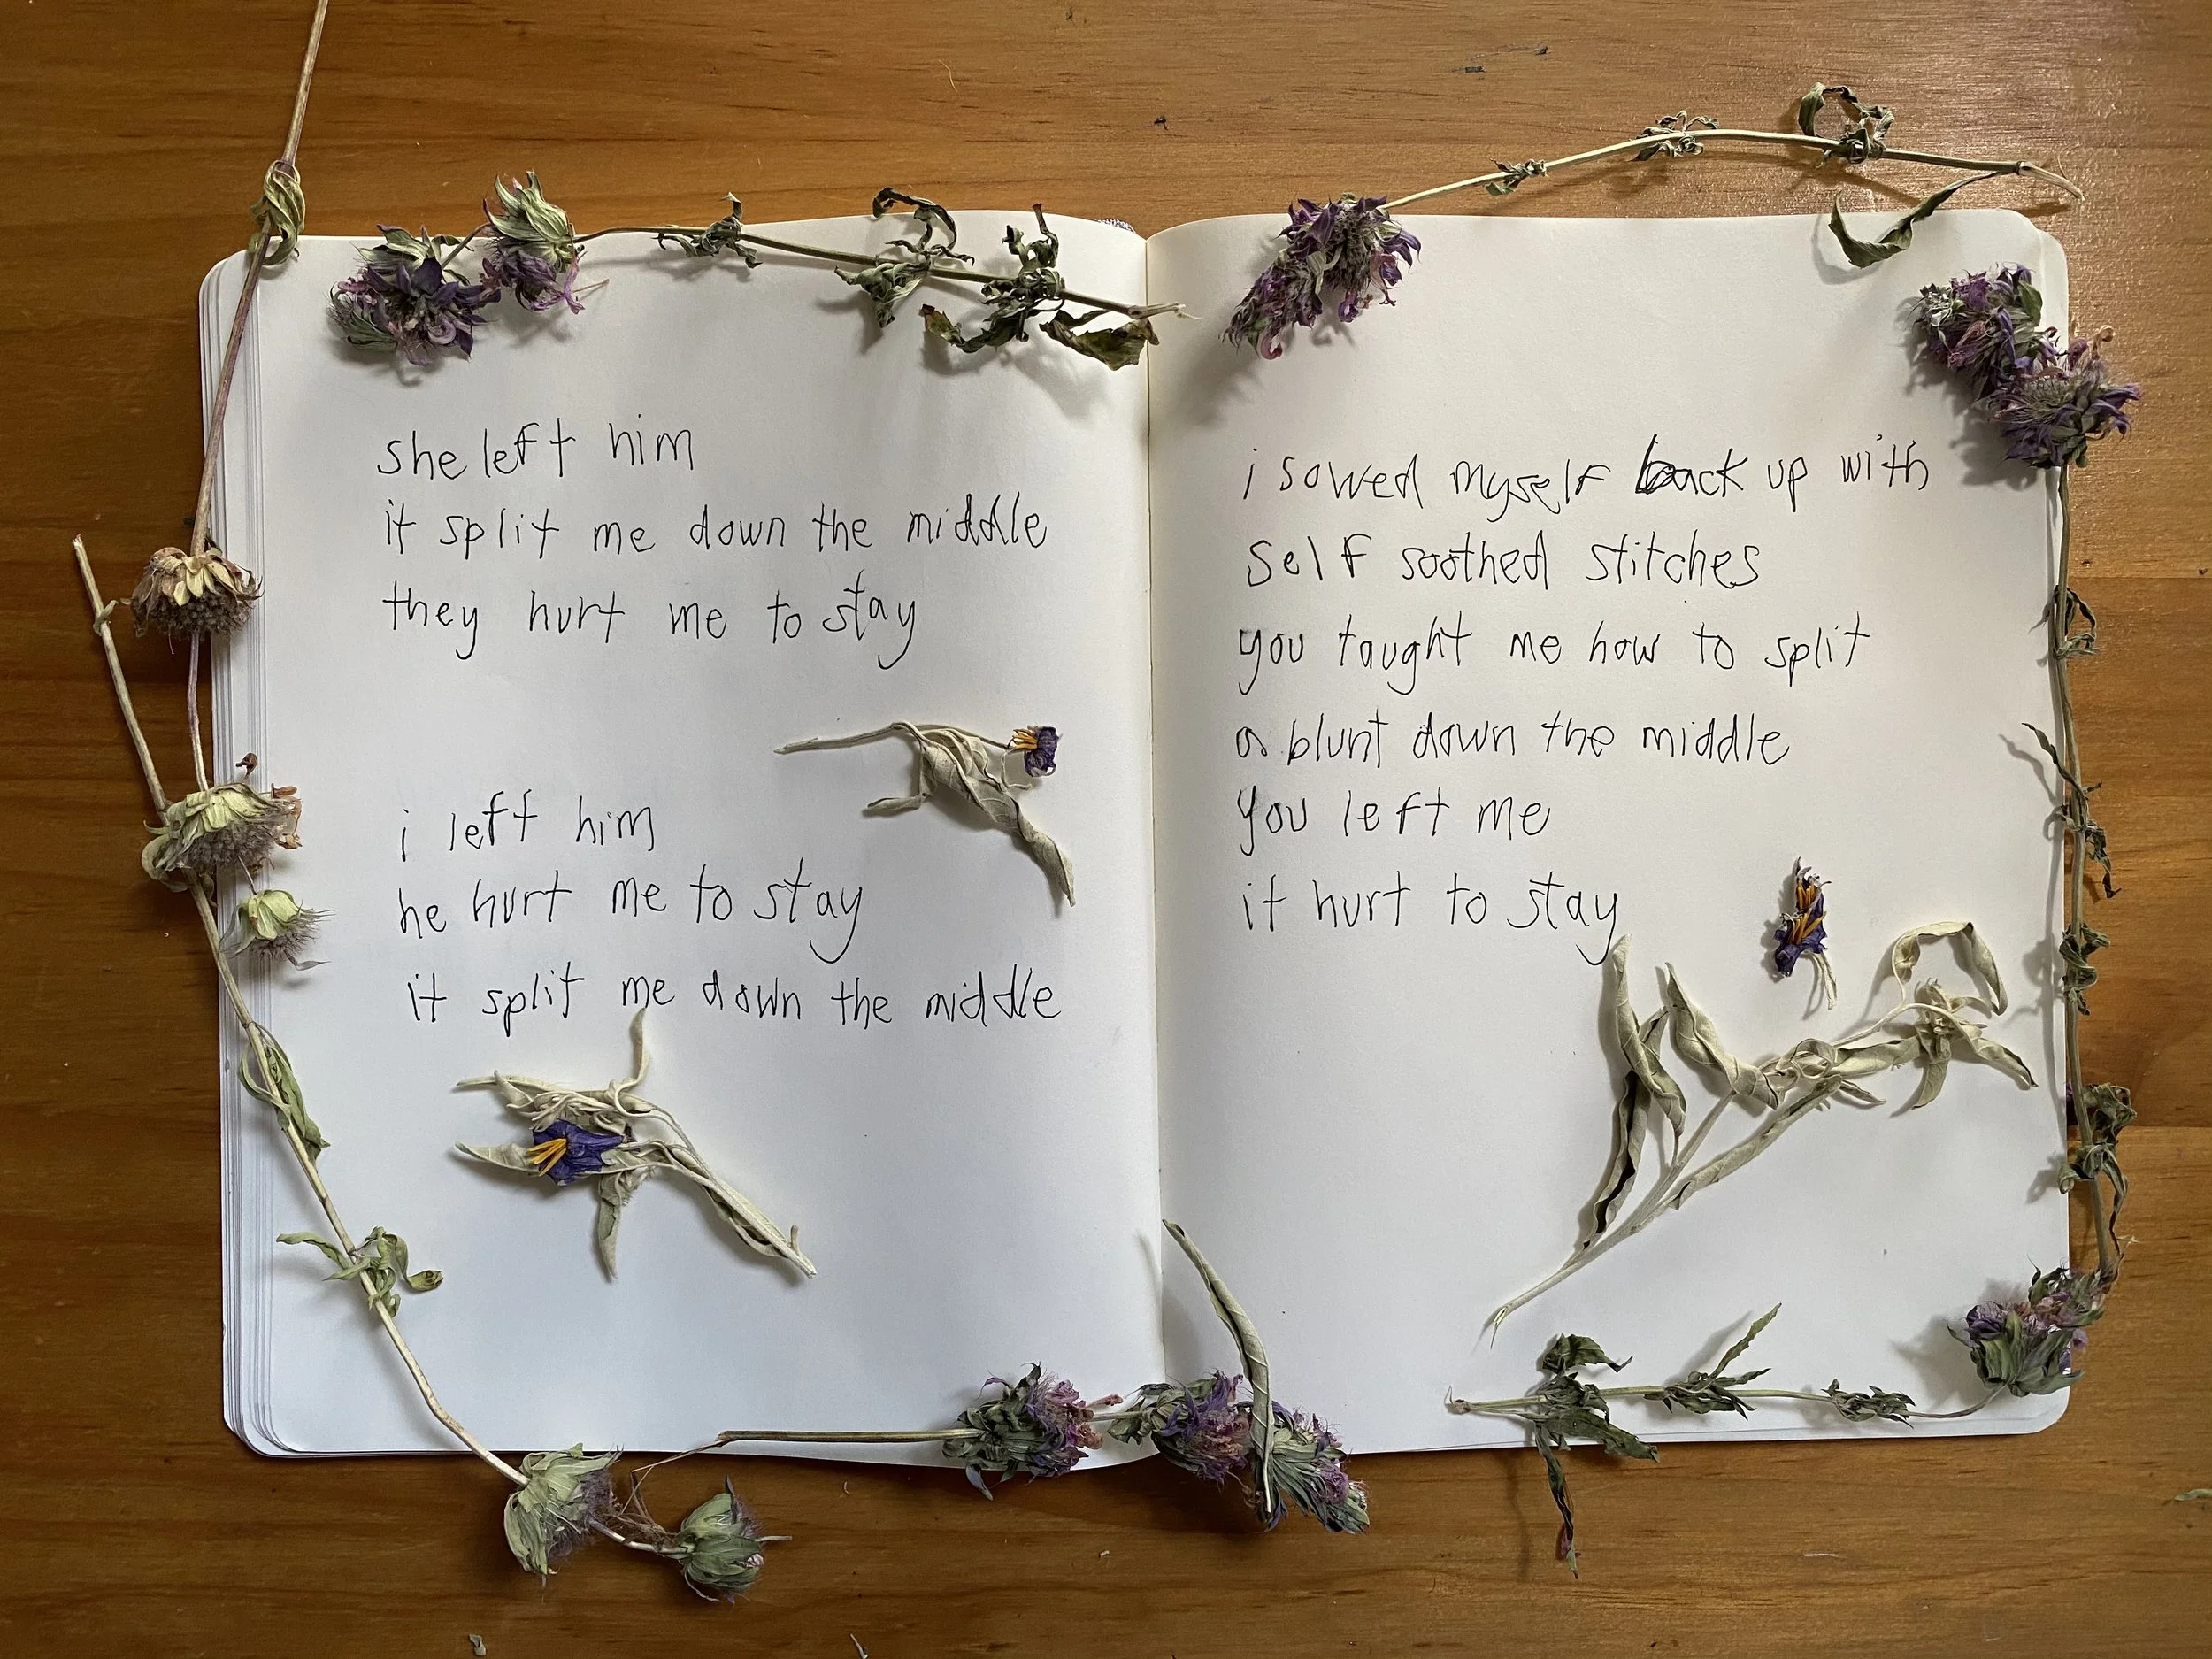 she left him
it split me down the middle
they hurt me to stay
i left him
he hurt me to stay
it split me down the middle
i sowed myself back up with
self soothed stitches
you taught me how to split
a blunt down the middle
you left me
it hurt to stay